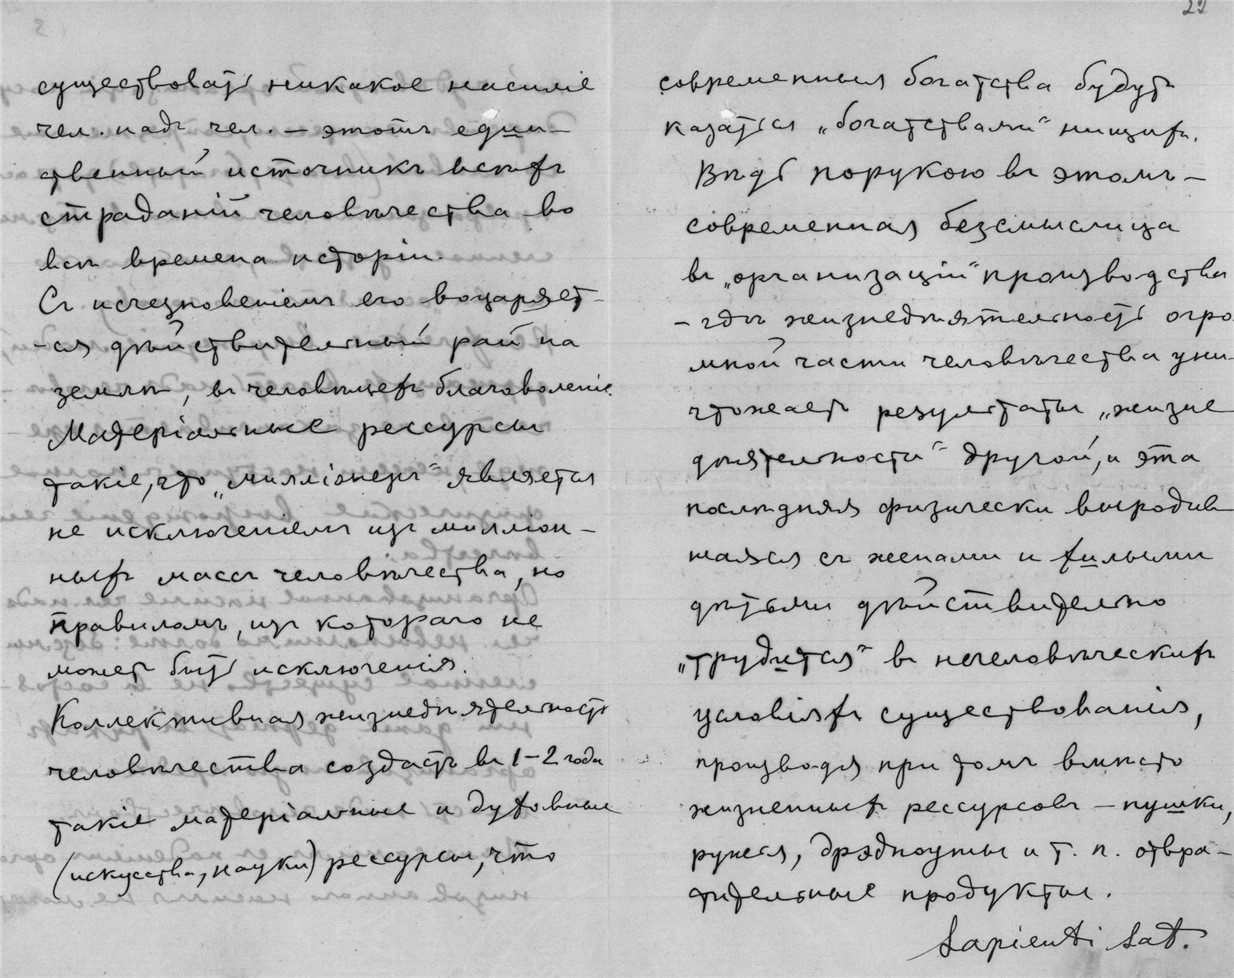 22
существовать никакое насиліе
чел. надъ чел. — этотъ един-
ственный источникъ всѣхъ
страданій человѣчества во
всѣ времена исторіи.
Съ исчезновеніемъ его воцаряет-
-ся дѣйствительный рай на
землѣ, въ человѣцехъ благоволеніе.
Матеріальные рессурсы
такіе, что „милліонеръ“ является
не исключеніемъ изъ миллион-
ныхъ массъ человѣчества, но
правиломъ, изъ котораго не
можетъ быть исключенія.
Коллективная жизнедѣятельность
человѣчества создастъ въ 1-2 года
такіе матеріальные и духовные
(искусства, науки) рессурсы, что
современныя богатства будутъ
казаться „богатствами“ нищихъ.
Вѣдь порукою въ этомъ —
современная безсмыслица
въ „организаціи“ производства
— гдѣ жизнедѣятельность огро-
мной части человѣчества уни-
чтожаетъ результаты „жизне
дѣятельности“ другой, и эта
послѣдняя физически выродив
шаяся съ женами и хилыми
дѣтьми дѣйствительно
„трудится“ въ нечеловѣческихъ
условіяхъ существованія,
производя при томъ вмѣсто
жизненныхъ рессурсовъ — пушки,
ружья, дрэдноуты и т. п. отвра-
тительные продукты.
Sapienti sat.